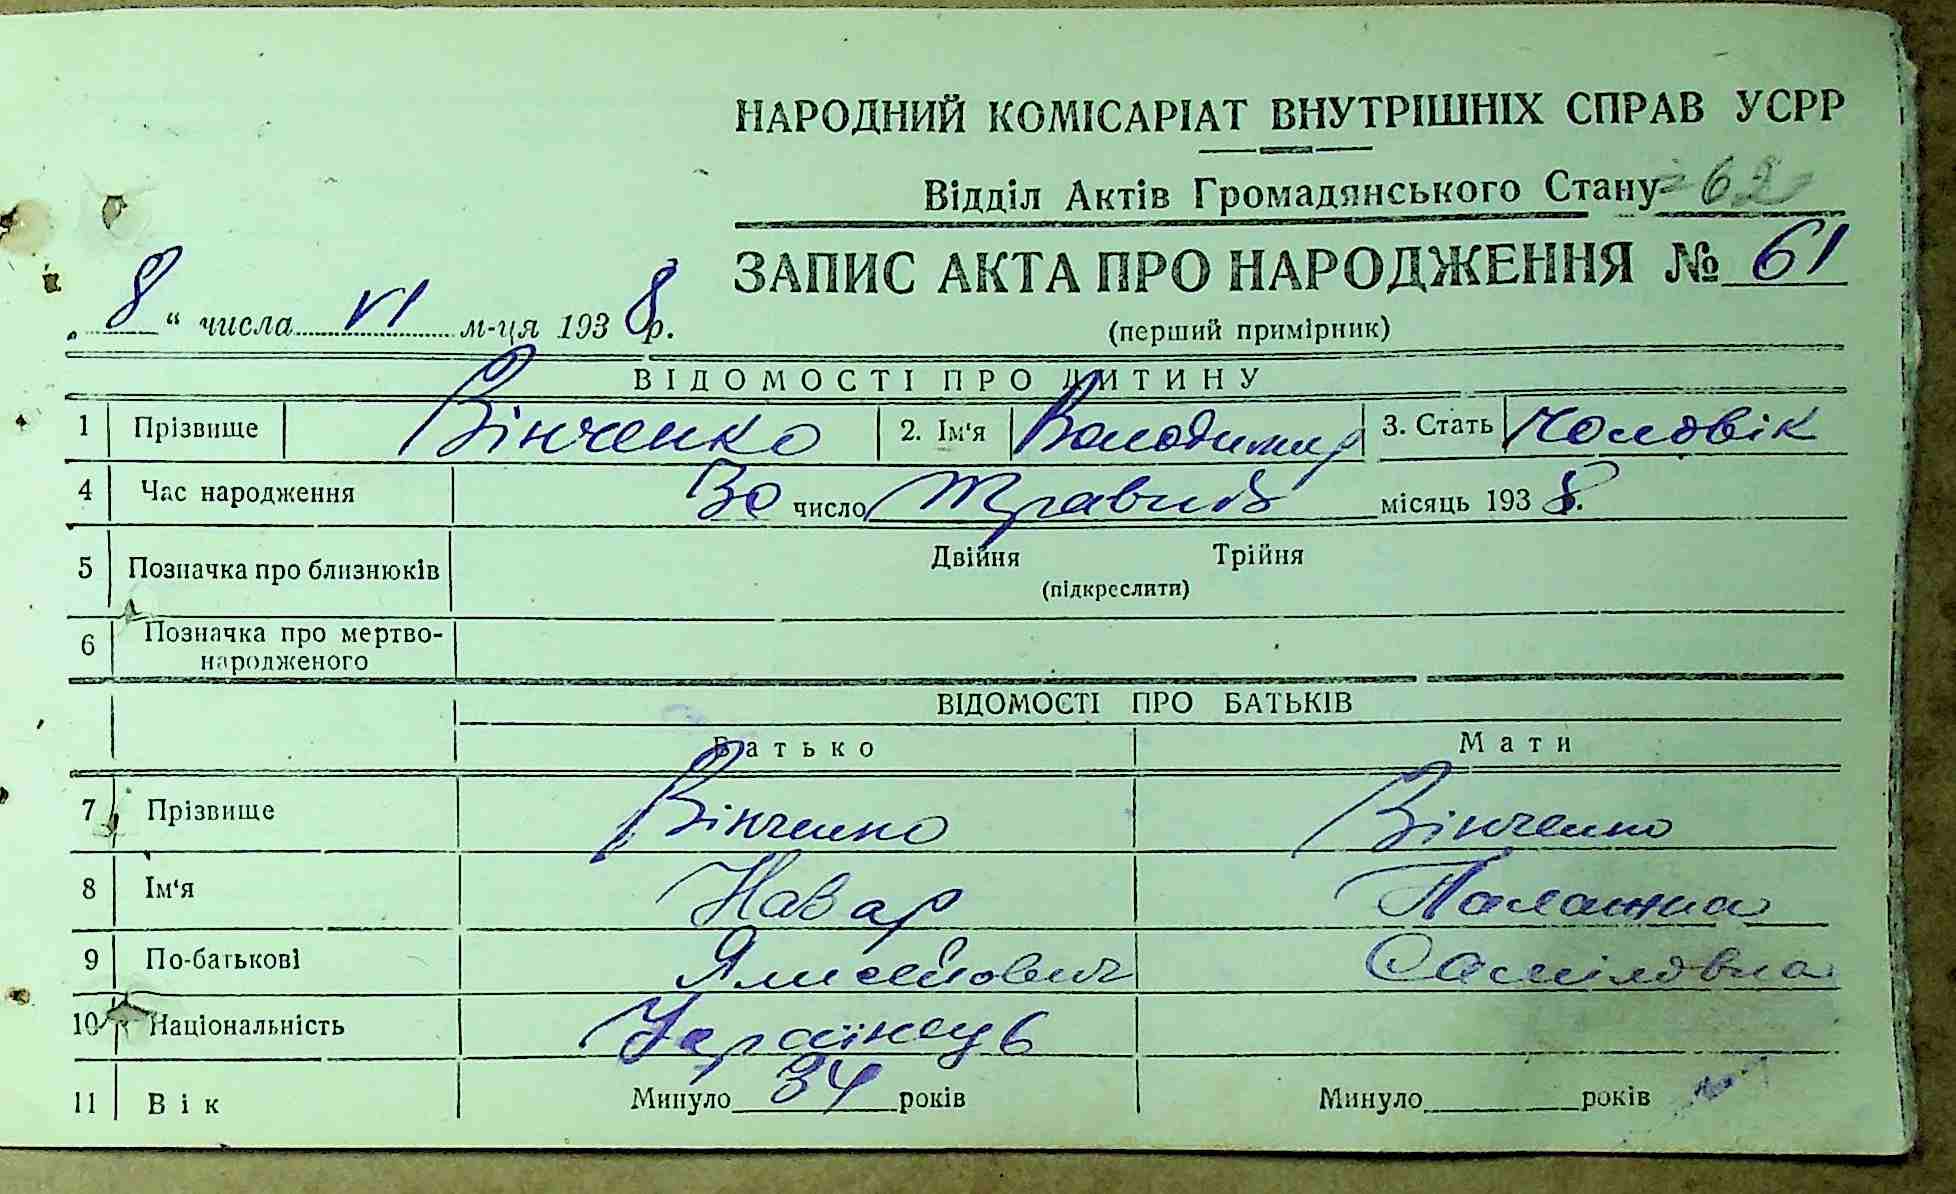 НАРОДНИЙ КОМІСАРІАТ ВНУТРІШНІХ СПРАВ УСРР
Відділ Актів Громадянського Стану 62
ЗАПИС АКТА ПРО НАРОДЖЕННЯ № 61
„8“ числа VI м-ця 1938 р.
(перший примірник)
ВІДОМОСТІ ПРО ДИТИНУ
1 Прізвище Вінченко 2. Ім‘я Володимир 3. Стать Чоловік
4 Час народження 30 число Травня місяць 1938.
5 Позначка про близнюків Двійня Трійня
(підкреслити)
6 Позначка про мертво-
народженого
ВІДОМОСТІ ПРО БАТЬКІВ
Батько Мати
7 Прізвище Вінченко Вінченко
8 Ім‘я Назар Палажка
9 По-батькові
10 Національність Українець
11 Вік Минуло 34 років Минуло років